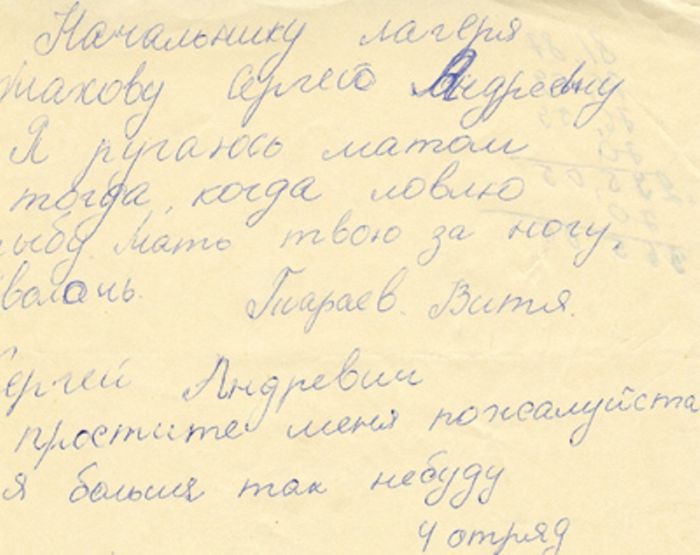 Начальнику лагеря
Сергею Андреевну
Я ругаюсь матом
тогда, когда ловлю
рыбу Мать твою за ногу,
сволочь. Тараев. Витя.
Сергей Андревич
простите меня пожалуйста
я больше так небуду
4 отряд